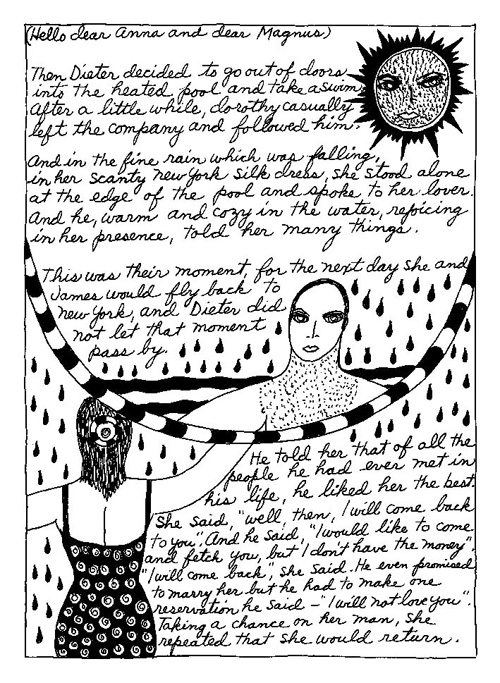 (Hello dear Anna and dear Magnus)
Then Dieter decided to go out of doors
into the heated pool and take a swim.
After a little while, dorothy casually
left the company and followed him.
And in the fine rain which was falling,
in her scanty new york silk dress, she stood alone
at the edge of the pool and spoke to her lover.
And he, warm and cozy in the water, rejoicing
in her presence, told her many things.
This was their moment, for the next day she and
James would fly back to
new york, and Dieter did
not let that moment
pass by.
He told her that of all the
people he had ever met in
his life, he liked her the best.
She said, "well, then, I will come back
to you". And he said, "I would like to come
and fetch you, but I don't have the money".
"I will come back", she said. He even promised
to marry her but he had to make one
reservation he said – "I will not love you".
Taking a chance on her man, she
repeated that she would return.